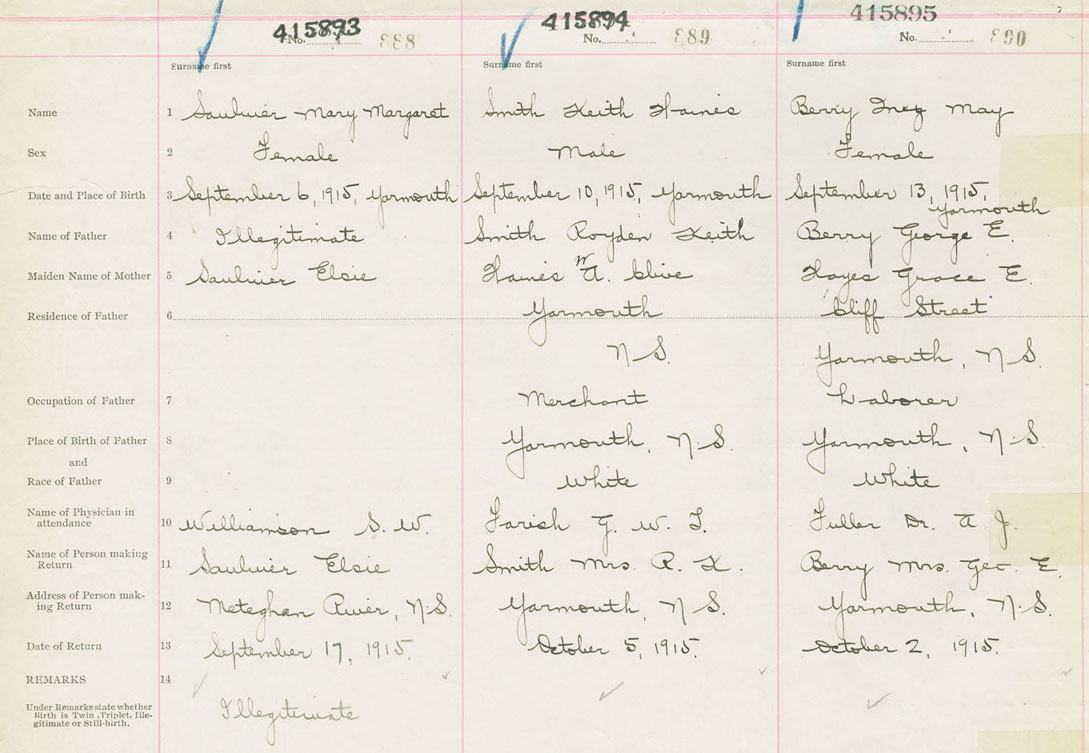 415893 415894 415895
No. 888 No. 889 No. 890
Surname first Surname first Surname first
Name 1 Saulnier Mary Margaret Smith Keith Haines Berry Inez May
Sex 2 Female Male Female
Date and Place of Birth 3 September 6, 1915, Yarmouth September 10, 1915, Yarmouth September 13, 1915,
Yarmouth
Name of Father 4 Illegitimate Smith Royden Keith Berry George E.
W
Maiden Name of Mother 5 Saulnier Elsie Haines A. Clive Hayes Grace E.
Residence of Father 6 Yarmouth Cliff Street
N-S. Yarmouth, N-S.
Occupation of Father 7 Merchant Laborer
Place of Birth of Father 8 Yarmouth, N-S. Yarmouth, N-S.
and
Race of Father 9 White White
Name of Physician in
attendance 10 Williamson S. W. Farish G. W. T. Fuller Dr. A J.
Name of Person making
Return 11 Saulnier Elsie Smith Mrs. R. K. Berry Mrs. Geo. E.
Address of Person mak-
ing Return 12 Meteghan River, N-S. Yarmouth, N-S. Yarmouth, N-S.
Date of Return 13 September 17, 1915. October 5, 1915. October 2, 1915.
REMARKS 14
Under Remarks state whether
Birth is Twin, Triplet, Ille-
gitimate or Still-birth. Illegitimate